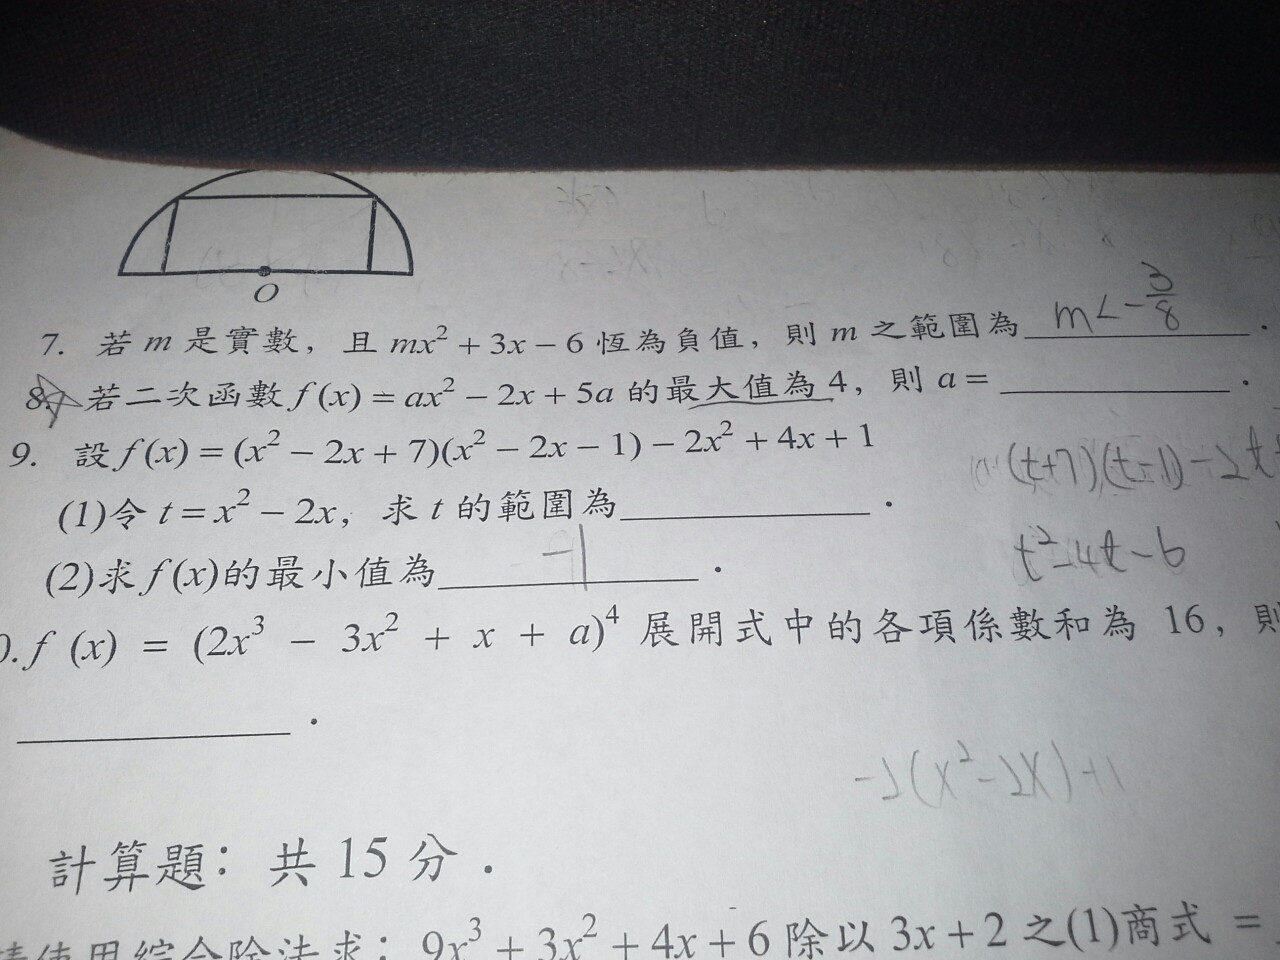 O
7. 若 m 是實數，且 mx² + 3x − 6 恆為負值，則 m 之範圍為 m < −3/8 .
8. 若二次函數 f(x) = ax² − 2x + 5a 的最大值為 4，則 a = ________ .
9. 設 f(x) = (x² − 2x + 7)(x² − 2x − 1) − 2x² + 4x + 1
(t+7)(t−1)−2t
(1)令 t = x² − 2x，求 t 的範圍為________ .
t²−4t−6
(2)求 f(x)的最小值為 −1 .
0. f (x) = (2x³ − 3x² + x + a)⁴ 展開式中的各項係數和為 16，則
________ .
−2(x²−2x)+1
計算題：共 15 分 .
請使用綜合除法求：9x³ + 3x² + 4x + 6 除以 3x + 2 之(1)商式 =